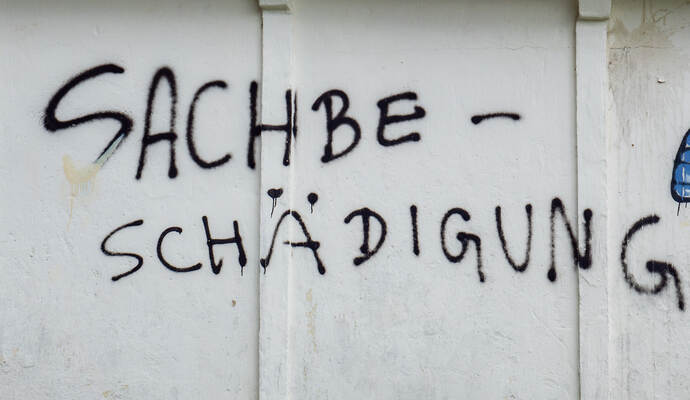 SACHBE-
SCHÄDIGUNG